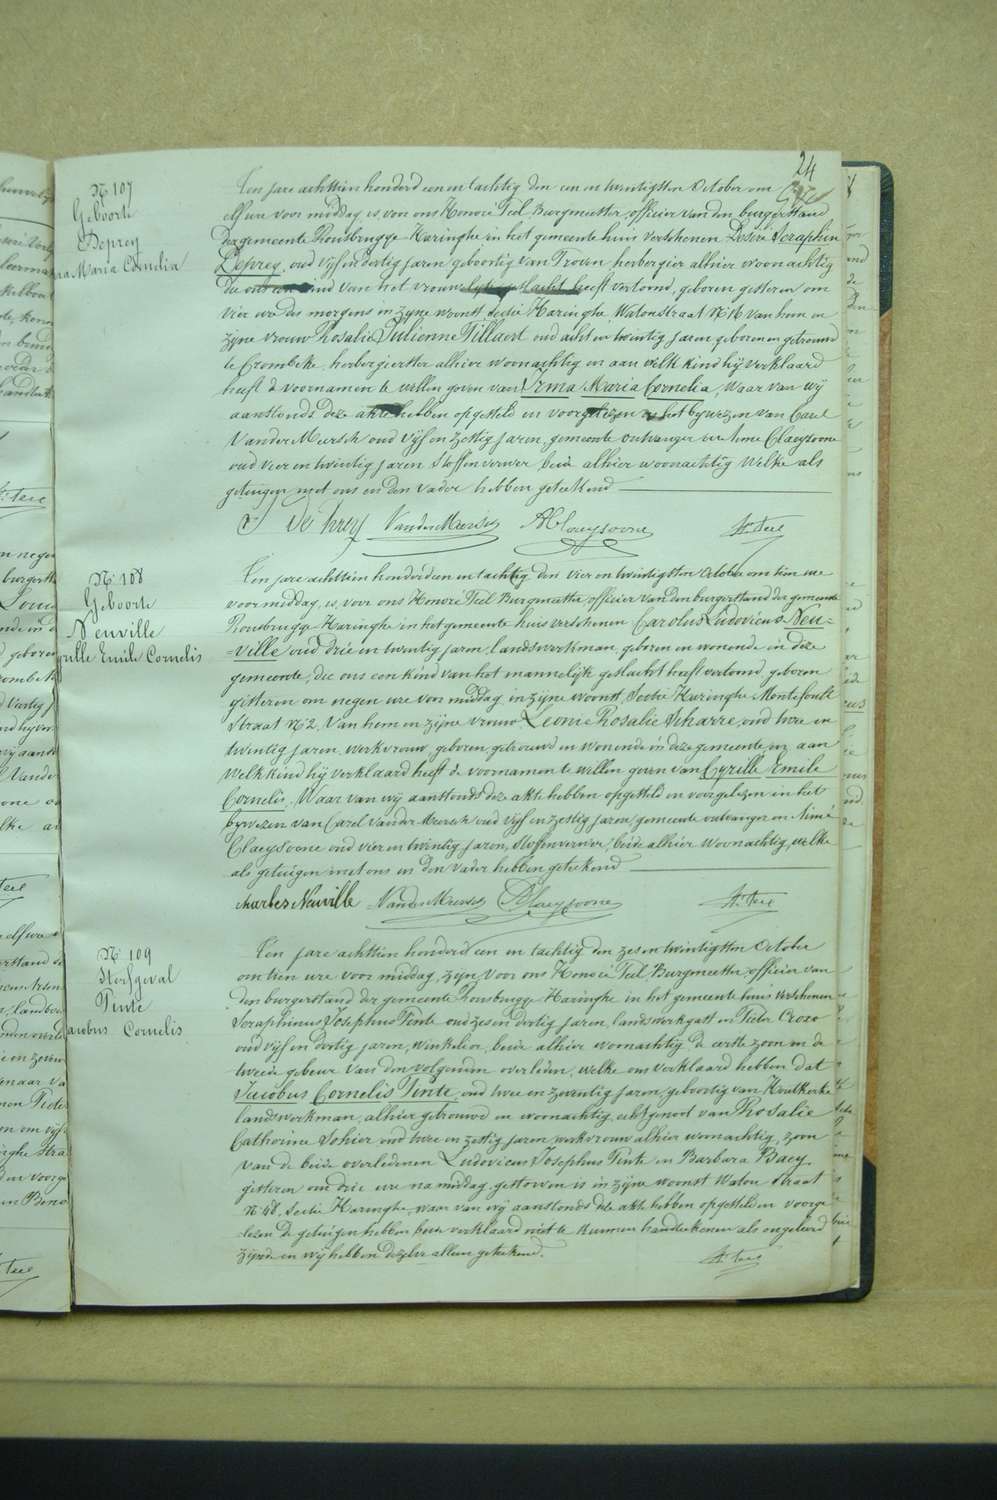 24
N: 107
Geboorte
Deprey
Maria Cornelia
Ten jare achttien honderd een en tachtig den een en twintigsten October om
elf ure voor middag, is voor ons Honoré Teel, Burgmeester, officier van den burgerstand
der gemeente Rousbrugge Haringhe in het gemeente huis verschenen Desiré Seraphin
Deprey, oud vijf en dertig jaren geboortig van Proven herbergier alhier woonachtig
die ons een kind van het vrouwelijk geslacht heeft vertoond, geboren gisteren om
vier ure des morgens in zijne woonst sectie Haringhe Watoustraat N: 16 van hem en
zijne vrouw Rosalie Julienne Tillaert oud acht en twintig jaren geboren en getrouwd
te Crombeke, herbergierster alhier woonachtig en aan welk kind hij verklaard
heeft de voornamen te willen geven van Irma Maria Cornelia, Waar van wij
aanstonds deze akte hebben opgesteld en voorgelezen in het bywezen van Carel
VanderMeersch oud vijf en zestig jaren, gemeente ontvanger en Aimé Claeysoone
oud vier en twintig jaren Stoffenverwer beide alhier woonachtig welke als
getuigen met ons en den vader hebben geteekend
D Deprey VanderMeersch A Claeysoone H. Teel
N: 108
Geboorte
Neuville
Cyrille Emile Cornelis
Ten jare achttien honderd een en tachtig den vier en twintigsten october om tien ure
voor middag, is, voor ons Honoré Teel Burgmeester officier van den burgerstand der gemeente
Rousbrugge Haringhe in het gemeente huis verschenen Carolus Ludovicus Neu=
=ville oud drie en twintig jaren, landswerkman, geboren en wonende in deze
gemeente, die ons een kind van het mannelijk geslacht heeft vertoond, geboren
gisteren om negen ure voor middag in zijne woonst, Sectie Haringhe
Straat N: 2. Van hem en zijne vrouw Leonie Rosalie Scharre, oud twee en
twintig jaren, werkvrouw, geboren getrouwd en wonende in deze gemeente en aan
welk kind hij verklaard heeft de voornamen te willen geven van Cyrille Emile
Cornelis. Waar van wij aanstonds deze akte hebben opgesteld en voorgelezen in het
bywezen van Carel VanderMeersch oud vijf en zestig jaren, gemeente ontvanger en Aimé
Claeysoone oud vier en twintig jaren, Stoffenverwer, beide alhier woonachtig, welke
als getuigen met ons en den vader hebben geteekend
charles Neuville VanderMeersch A Claeysoone H. Teel
N: 109
Sterfgeval
Pinte
Jacobus Cornelis
Ten jare achttien honderd een en tachtig den zes en twintigsten October
om tien ure voor middag, zijn, voor ons Honoré Teel, Burgmeester, officier van
den burgerstand der gemeente Rousbrugge Haringhe in het gemeente huis verschenen
Seraphinus Josephus Pinte oud zes en dertig jaren, landswerkgast en Pieter
oud vijf en dertig jaren, Winkelier, beide alhier woonachtig de eerste zoon en de
tweede gebuur van den volgenden overleden, welke ons verklaard hebben dat
Jacobus Cornelis Pinte, oud twee en zeventig jaren, geboortig van Houtkerke
landswerkman, alhier getrouwd en woonachtig, echtgenoot van Rosalie
Catherine Sohier oud twee en zestig jaren, werkvrouw alhier woonachtig, zoon
van de beide overledenen Ludovicus Josephus Pinte en Barbara Baey
gisteren om drie ure na middag, gestorven is in zijne woonst Watou Straat
N: 48, Sectie Haringhe, waar van wij aanstonds deze akte hebben opgesteld en voorge
lezen de getuigen hebben beide verklaard niet te kunnen handteekenen als ongeleerd
zijnde en wij hebben dezelve alleen geteekend.
H. Teel